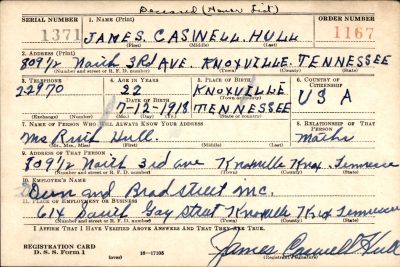 Deceased (Honor List)
SERIAL NUMBER 1. Name (Print) ORDER NUMBER
1371 JAMES CASWELL HULL 1167
(First) (Middle) (Last)
2. Address (Print)
809 1/2 North 3rd AVE. KNOXVILLE, TENNESSEE
(Number and street or R. F. D. number) (Town) (County) (State)
3. Telephone 4. Age in Years 5. Place of Birth 6. Country of Citizenship
22970 22 KNOXVILLE USA
Date of Birth (Town or county)
7-13-1918 TENNESSEE
(Exchange) (No.) (Mo.) (Day) (Yr.) (State or country)
7. Name of Person Who Will Always Know Your Address 8. Relationship of That Person
Mrs Hull. Mother
(Mr., Mrs., Miss) (First) (Middle) (Last)
9. Address of That Person
809 1/2 North 3rd ave Knoxville Knox. Tennessee
(Number and street or R. F. D. number) (Town) (County) (State)
10. Employer's Name
Dun and Bradstreet Inc.
11. Place of Employment or Business
614 South Gay Street Knoxville Knox Tennessee
(Number and street or R. F. D. number) (Town) (County) (State)
I Affirm That I Have Verified Above Answers and That They Are True.
REGISTRATION CARD
D. S. S. Form 1 16—17105 (Registrant's signature)
James Caswell Hull